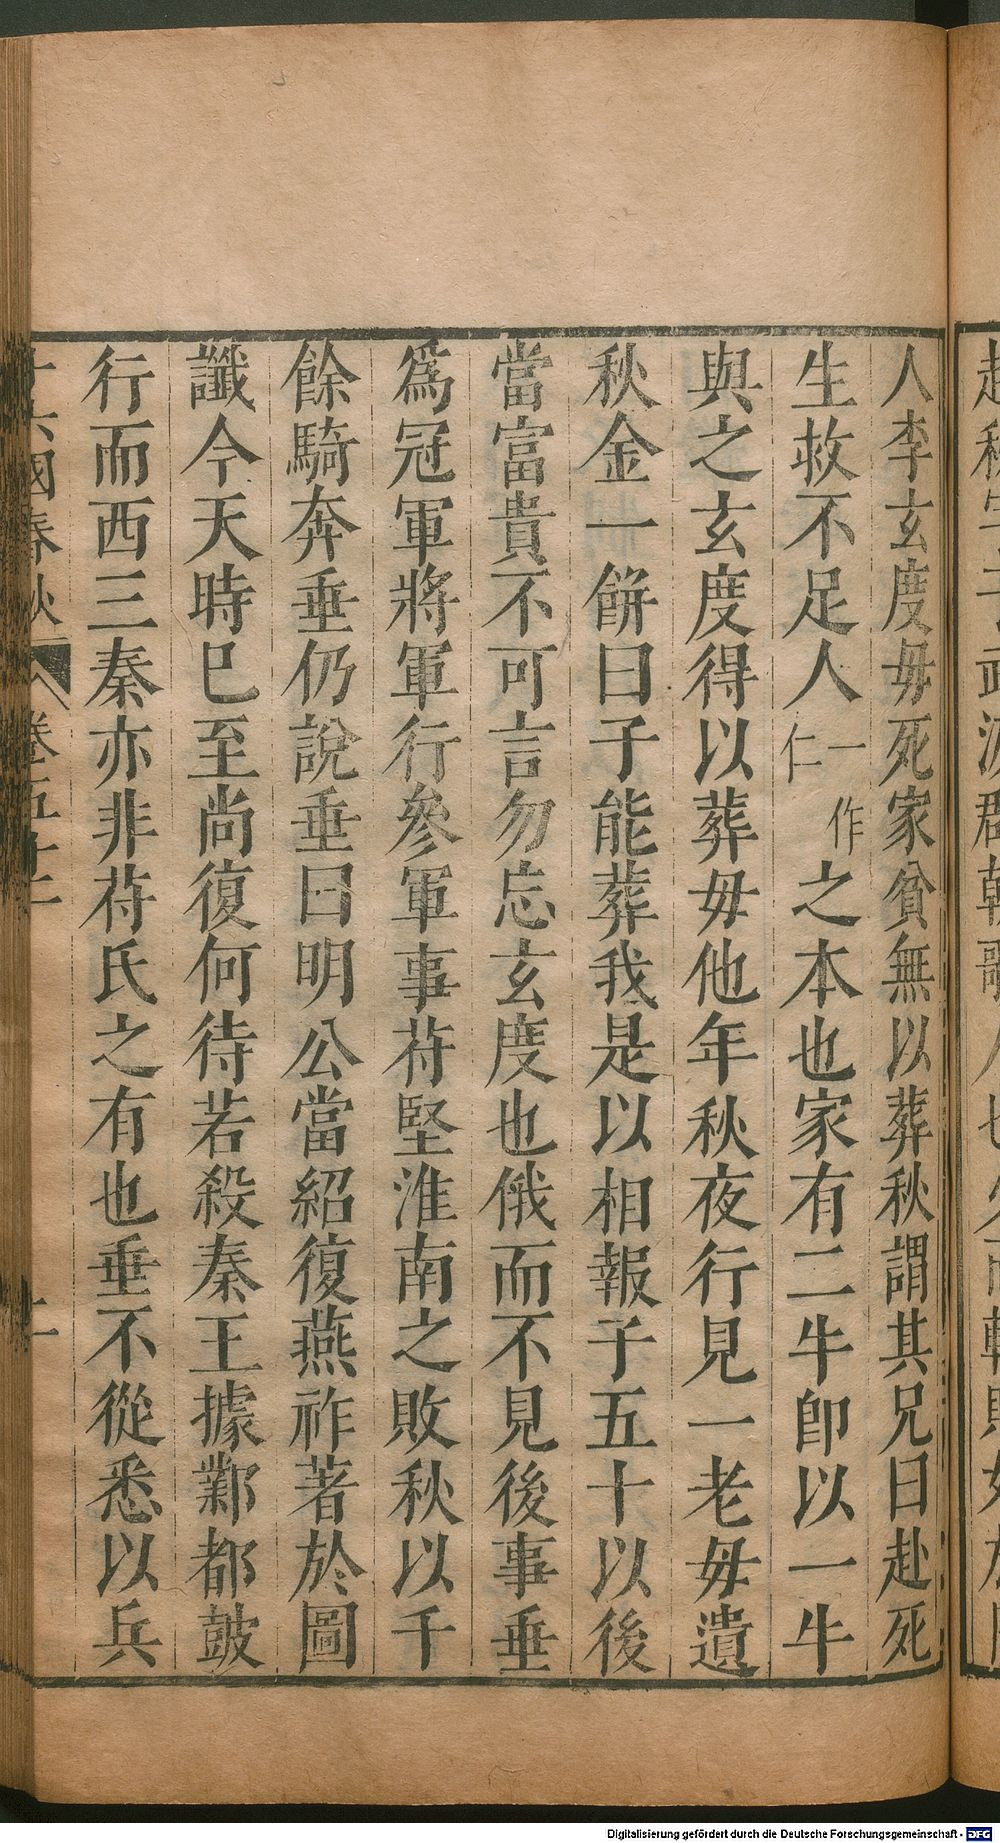 人李玄度毋死家貧無以葬秋謂其兄曰赴死
生救不足人一作仁之本也家有二牛卽以一牛
與之玄度得以葬毋他年秋夜行見一老毋遺
秋金一餠曰子能葬我是以相報子五十以後
當富貴不可言勿忘玄度也俄而不見後事垂
爲冠軍將軍行參軍事苻堅淮南之敗秋以千
餘騎奔垂仍說垂曰明公當紹復燕祚著於圖
讖今天時巳至尚復何待若殺秦王據鄴都皷
行而西三秦亦非苻氏之有也垂不從悉以兵
十六國春秋 卷五十 十一
Digitalisierung gefördert durch die Deutsche Forschungsgemeinschaft - DFG